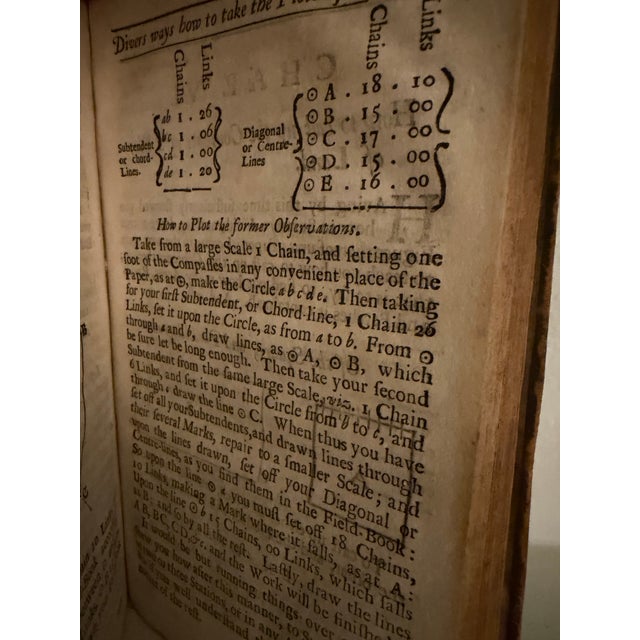 Divers ways how to take the
Chains
Links
Subtendent
or chord-
Lines.
ab 1 . 26
bc 1 . 06
cd 1 . 00
de 1 . 20
Diagonal
or Centre-
Lines
Chains
Links
☉ A . 18 . 10
☉ B . 15 . 00
☉ C . 17 . 00
☉ D . 15 . 00
☉ E . 16 . 00
How to Plot the former Obſervations.
Take from a large Scale 1 Chain, and ſetting one
foot of the Compaſſes in any convenient place of the
Paper, as at ☉, make the Circle a b c d e. Then taking
for your firſt Subtendent, or Chord-line, 1 Chain 26
Links, ſet it upon the Circle, as from a to b. From ☉
through a and b, draw lines, as ☉ A, ☉ B, which
be ſure let be long enough. Then take your ſecond
Subtendent from the ſame large Scale, viz. 1 Chain
6 Links, and ſet it upon the Circle from b to c, and
through c draw the line ☉ C. When thus you have
ſet off all your Subtendents, and drawn lines through
their ſeveral Marks, repair to a ſmaller Scale; and
upon the lines drawn, ſet off your Diagonal or
Centre-lines, as you find them in the Field-Book:
So upon the line ☉ a you muſt ſet off 18 Chains,
10 Links, making a Mark where it falls, as at A:
Upon the line ☉ b 15 Chains, 00 Links, which falls
at B: and ſo by all the reſt. Laſtly, draw the lines
A B, BC, C D, &c. and the Work will be finiſhed.
It would be but running things over
how you how after this manner, to
two or three Stations, or in any
if you well underſtand
of the reſt.